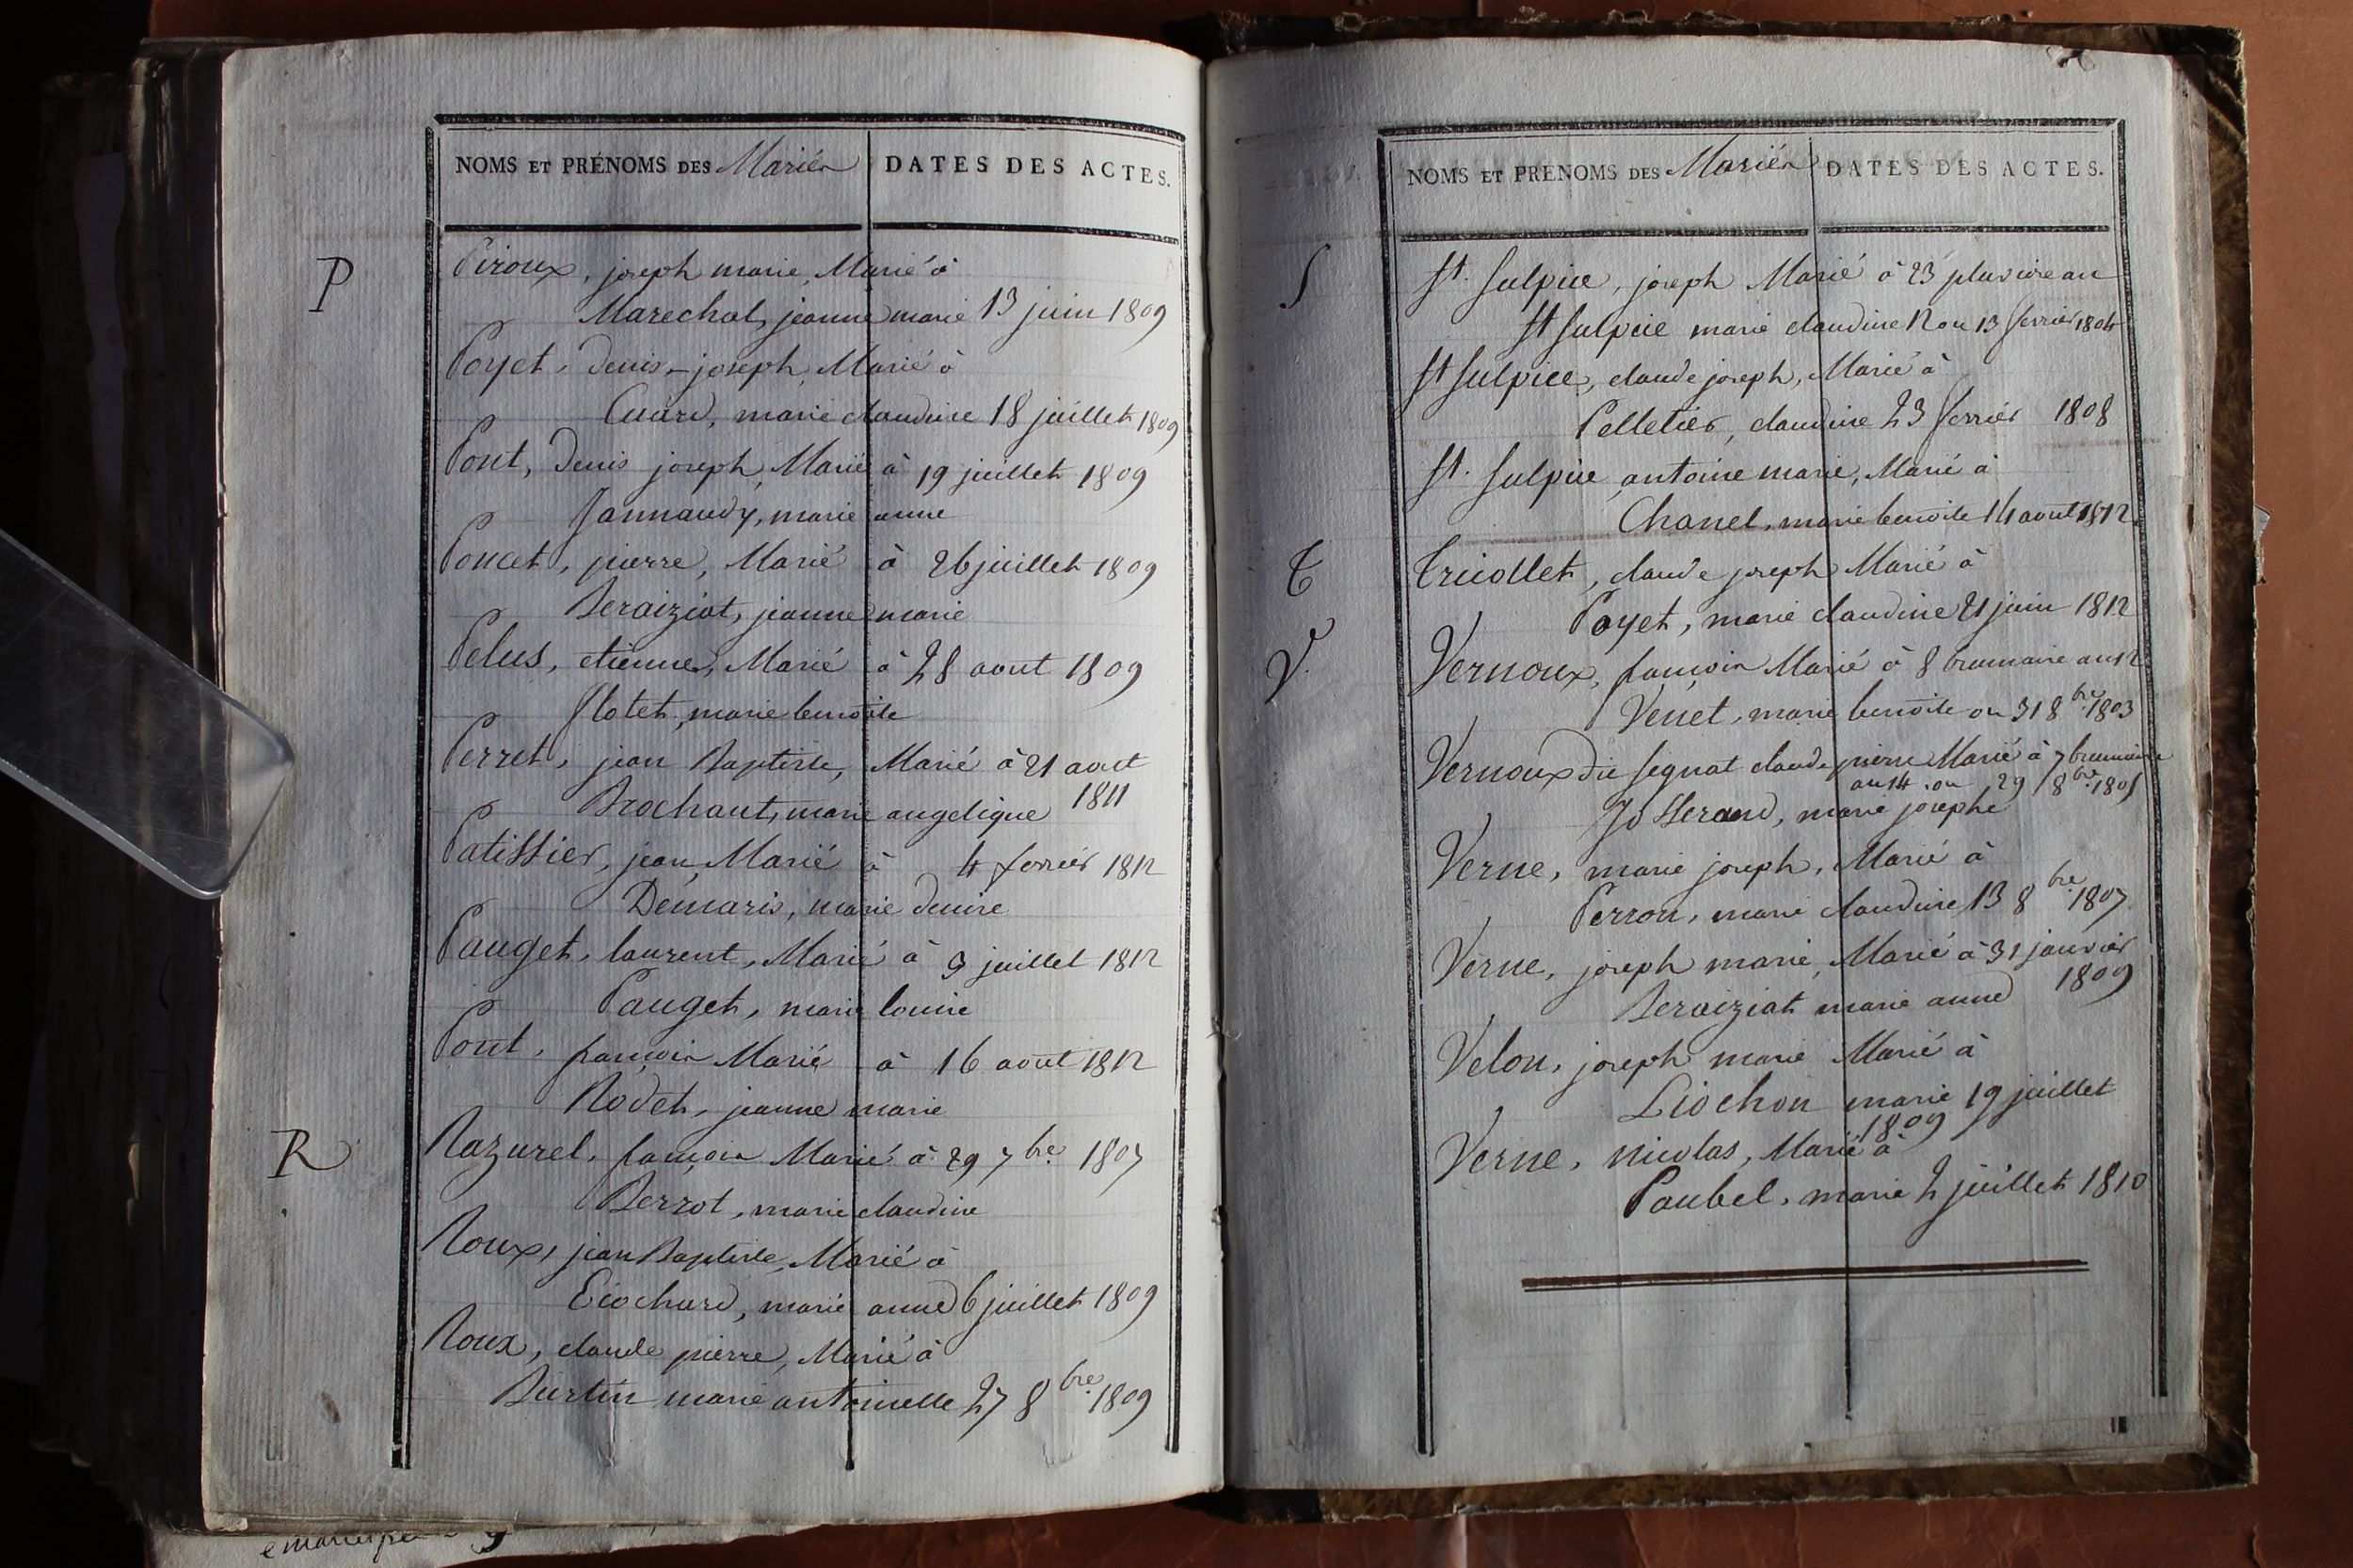 NOMS ET PRÉNOMS DES Mariés DATES DES ACTES.
P
Piroux, joseph marie, Marié à
Marechal, jeanne marie 13 juin 1809
Poyet, denis-joseph, Marié à
Cuard, marie claudine 18 juillet 1809
Pont, Denis joseph, Marié à 19 juillet 1809
Jannaudy, marie anne
Poncet, pierre, Marié à 26 juillet 1809
Beraiziat, jeanne marie
Pelus, etienne, Marié à 28 aout 1809
Flotet, marie benoite
Perret, jean Baptiste, Marié à 21 aout
Brochaut, marie angelique 1811
Patissier, jean, Marié à 4 fevrier 1812
Démaris, marie denise
Pauget, laurent, Marié à 9 juillet 1812
Pauget, marie louise
Pont, françois Marié à 16 août 1812
Rodet, jeanne marie
R
Razurel, françois Marié à 29 7bre 1807
Berrot, marie claudine
Roux, jean Baptiste, Marié à
Eiochard, marie anne 6 juillet 1809
Roux, claude pierre, Marié à
Burtin marie antoinette 27 8bre 1809
NOMS ET PRÉNOMS DES Mariés DATES DES ACTES.
S
St. Sulpice, joseph Marié à 23 pluviose an
St Sulpice marie claudine 12 ou 13 fevrier 1804
St Sulpice, claude joseph, Marié à
Pelletier, claudine 23 fevrier 1808
St. Sulpice antoine marie, Marié à
Chanel, marie benoite 14 aout 1812
T
Tricollet, claude joseph Marié à
Poyet, marie claudine 21 juin 1812
V.
Vernoux, françois Marié à 8 brumaire an 12
Venet, marie benoite ou 31 8bre 1803
Vernoux dit Segnat claude pierre Marié à 7 brumaire
an 14 ou 29 8bre 1805
Josserand, marie josephe
Verne, marie joseph, Marié à
Perron, marie claudine 13 8bre 1807
Verne, joseph marie, Marié à 31 janvier
Beraiziat marie anne 1809
Velon, joseph marie Marié à
Liochon marie 19 juillet
1809
Verne, nicolas, Marié à
Paubel, marie 2 juillet 1810